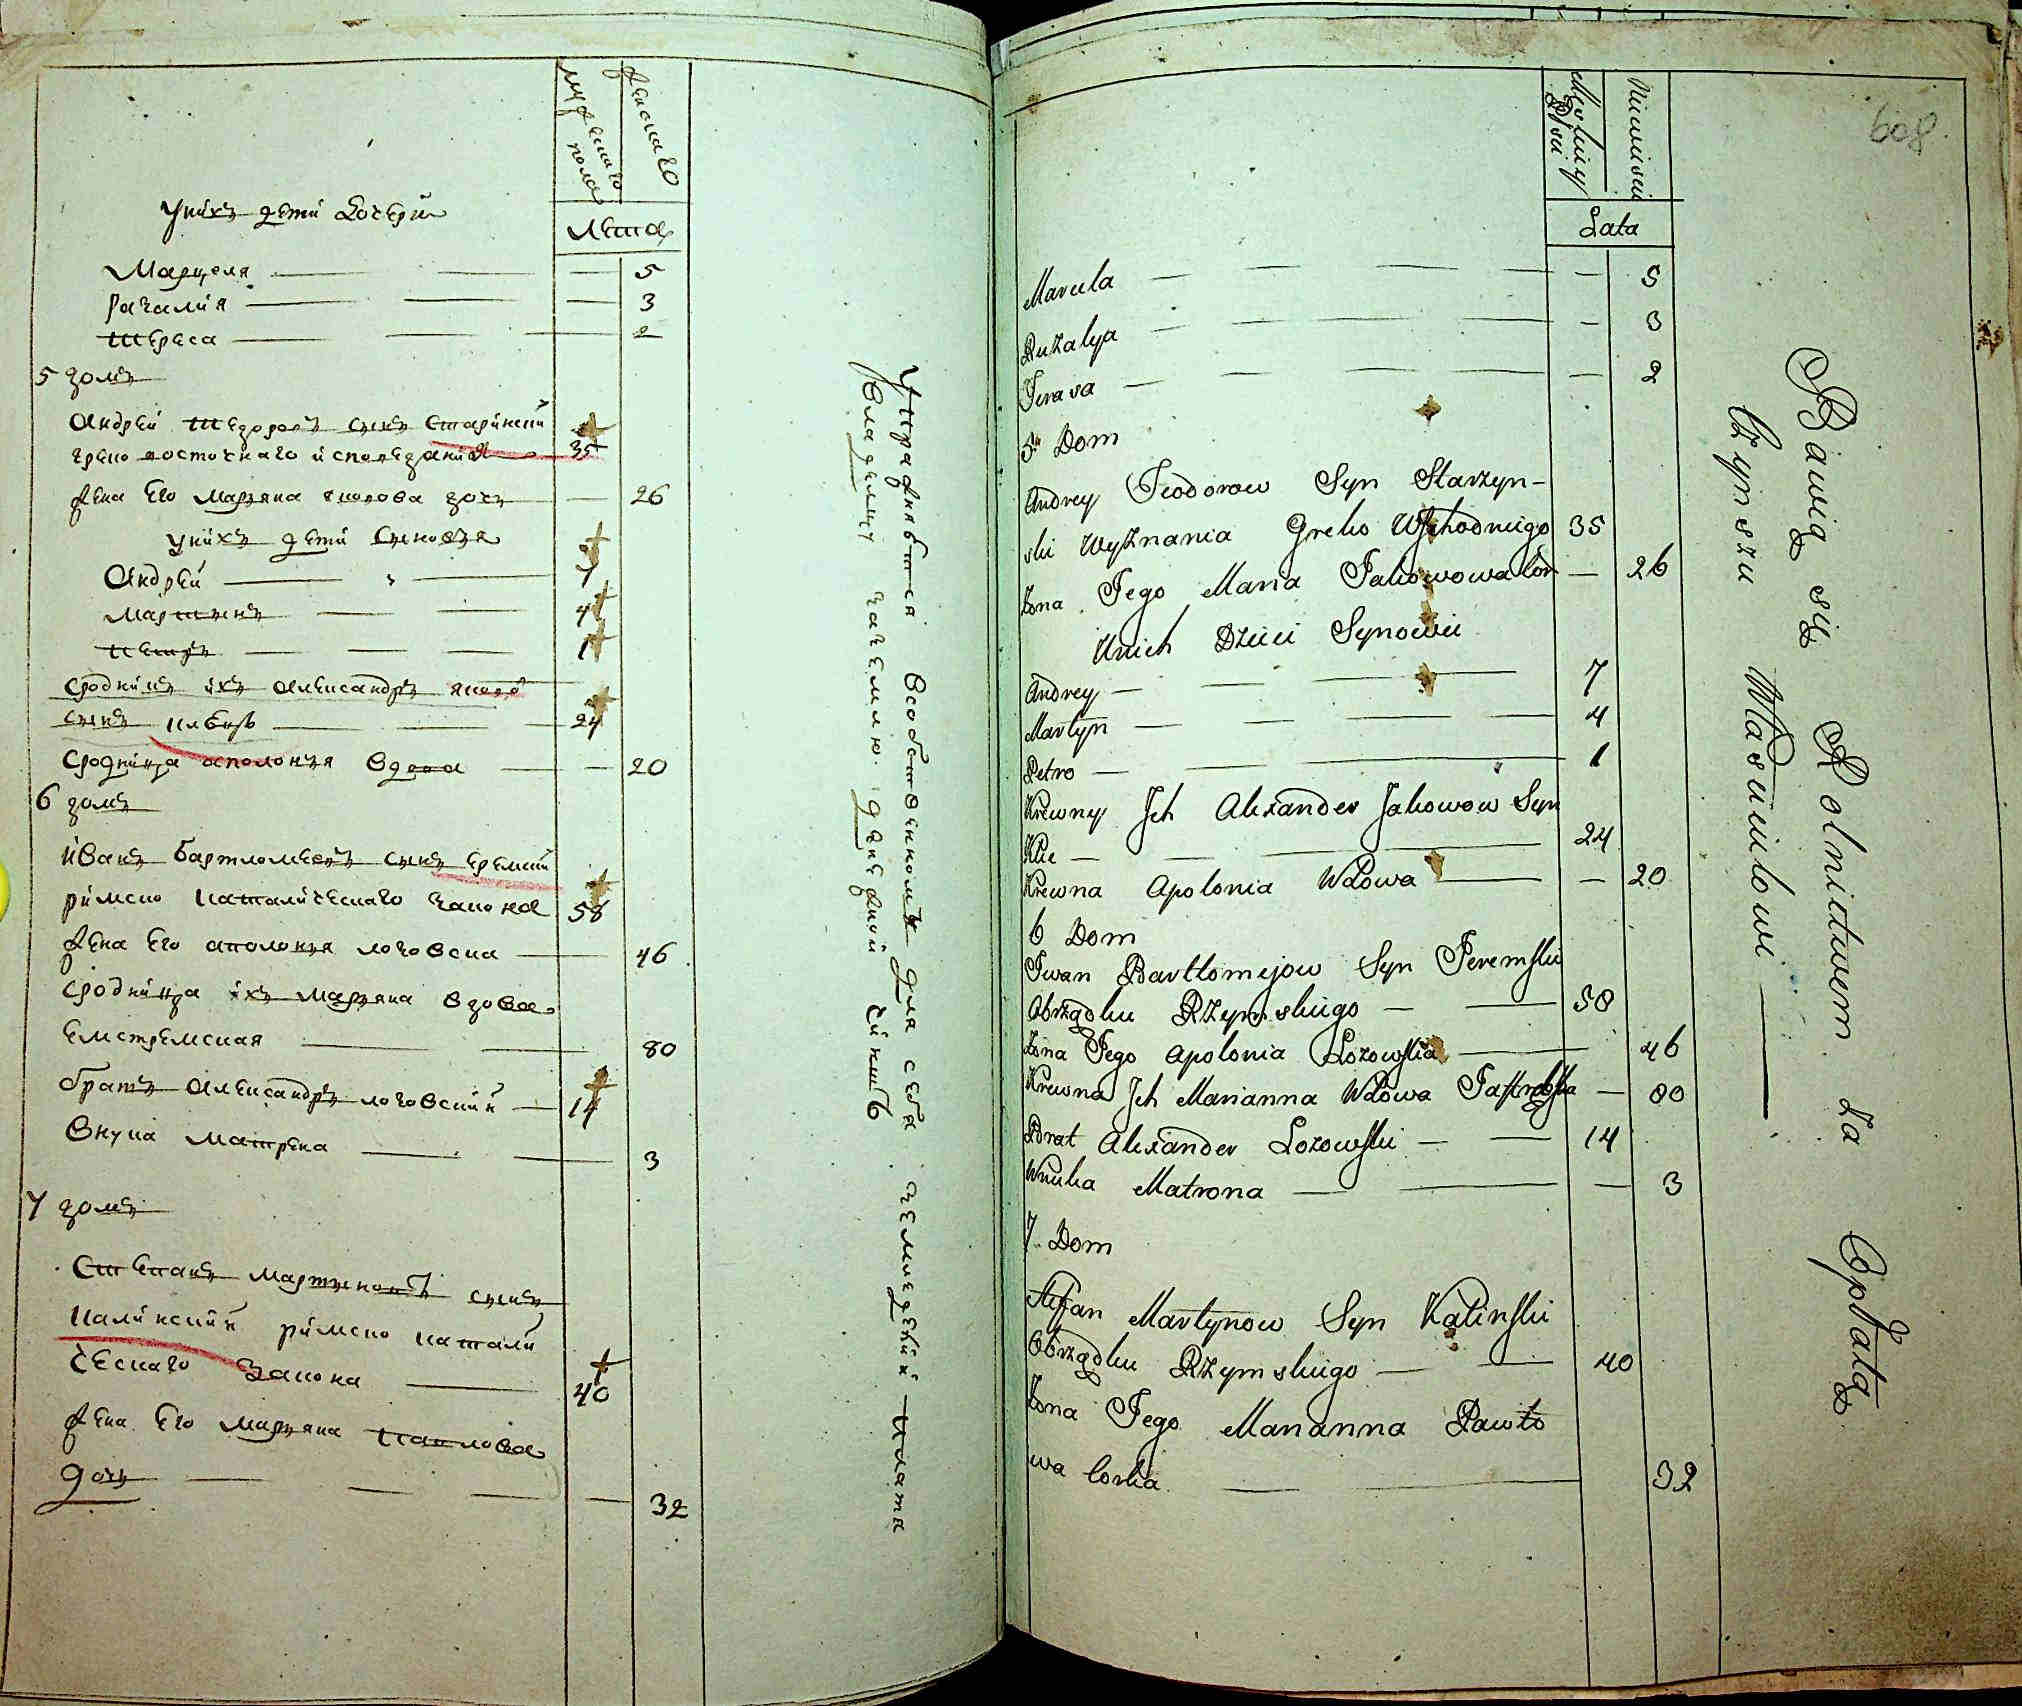 мужескаго пола
женскаго
Лета
у нихъ дети дочери
Марцеля — — 5
Разалия — — 3
Тереса — — 2
5 домъ
Андрей Теодоровъ сынъ Старинский
греко восточнаго исповедания — 35
жена Его Марьяна Якова дочь — 26
у нихъ дети сыновья
Андрей — 7
Мартынъ — — 4
Петръ — — — 1
сродникъ ихъ Александръ Яково
сынъ Клець — — 24
сродница аполонья вдова — — 20
6 домъ
Иванъ Бартломеевъ сынъ Еремский
римско Католическаго закона 58
жена Его аполонья лозовска — 46
сродница ихъ Марьяна вдова
— — 80
братъ Александръ лозовский — 14
внука Матрена — — 3
7 домъ
Степанъ Мартыновъ сынъ
Калинский римско катали
ческаго Закона — 40
жена Его Марьяна Павлова
дочь — — — — 32
Упражняются въ собственномъ для себя земледелии плата
владельцу за землю денежной чиншъ
608.
Męskiey Płci
Niewiesci
Lata
Marcela — — — — — 5
Ruzalya — — — — — 3
Teresa — — — — — 2
5 Dom
Andrey Teodorow Syn Starzyn-
ski Wyznania Greko Wschodniego 35
Żona Jego Maria Jakowowa Cór — 26
U nich Dzieci Synowie
Andrey — — — 7
Martyn — — — 4
Petro — — 1
Krewny Ich Alexander Jakowow Syn
Klec — — — 24
Krewna Apolonia Wdowa — — 20
6 Dom
Iwan Bartłomejow Syn Jeremski
Obrządku Rzymskiego — — 58
Żona Jego Apolonia Lozowska — 46
Krewna Ich Marianna Wdowa — 80
Brat Alexander Lozowski — — 14
Wnuka Matrona — — — 3
7. Dom
Stefan Martynow Syn Kalinski
Obrządku Rzymskiego — — 40
Żona Jego Marianna Pawło
wa Corka — — — 32
Bawią się Rolnictwem za Opłatą
Czynszu Właścicielowi —